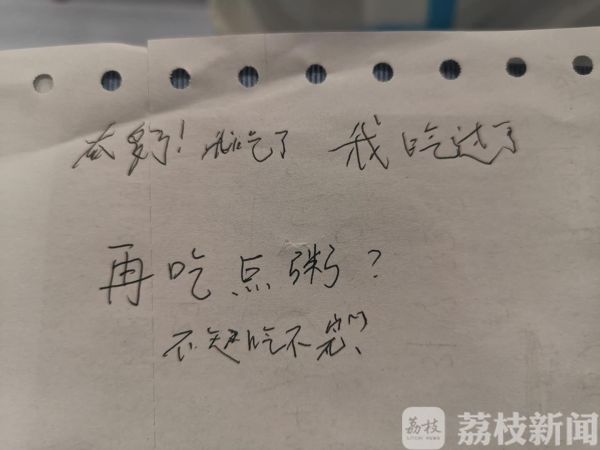 太多了！ 吃了 我吃过了
再吃点粥？
不 吃不完
荔枝 荔枝新闻
LITCHI NEWS